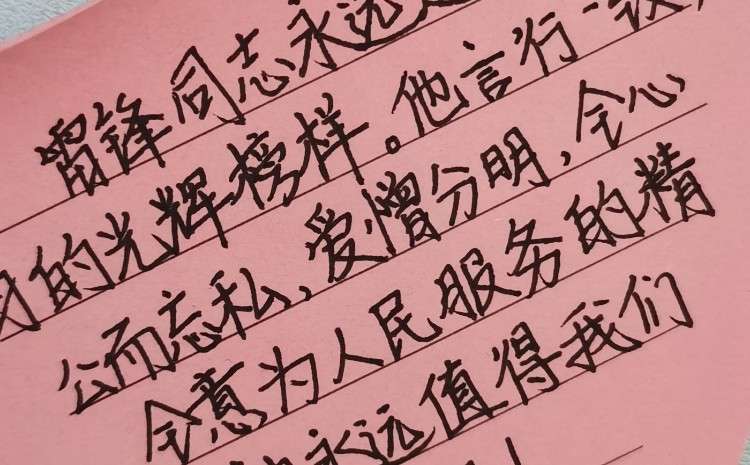 雷锋同志永远是
们的光辉榜样。他言行一致，
公而忘私，爱憎分明，全心
全意为人民服务的精
神永远值得我们